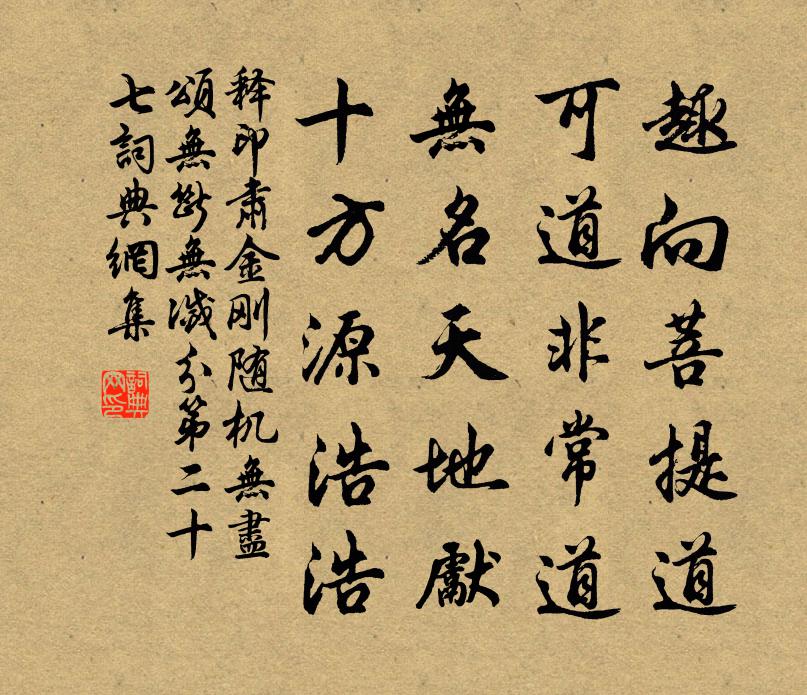 趣向菩提道
可道非常道
無名天地獻
十方源浩浩
释印肅金刚随机無盡
頌無斷無滅分第二十
七詞典網集
詞典網印